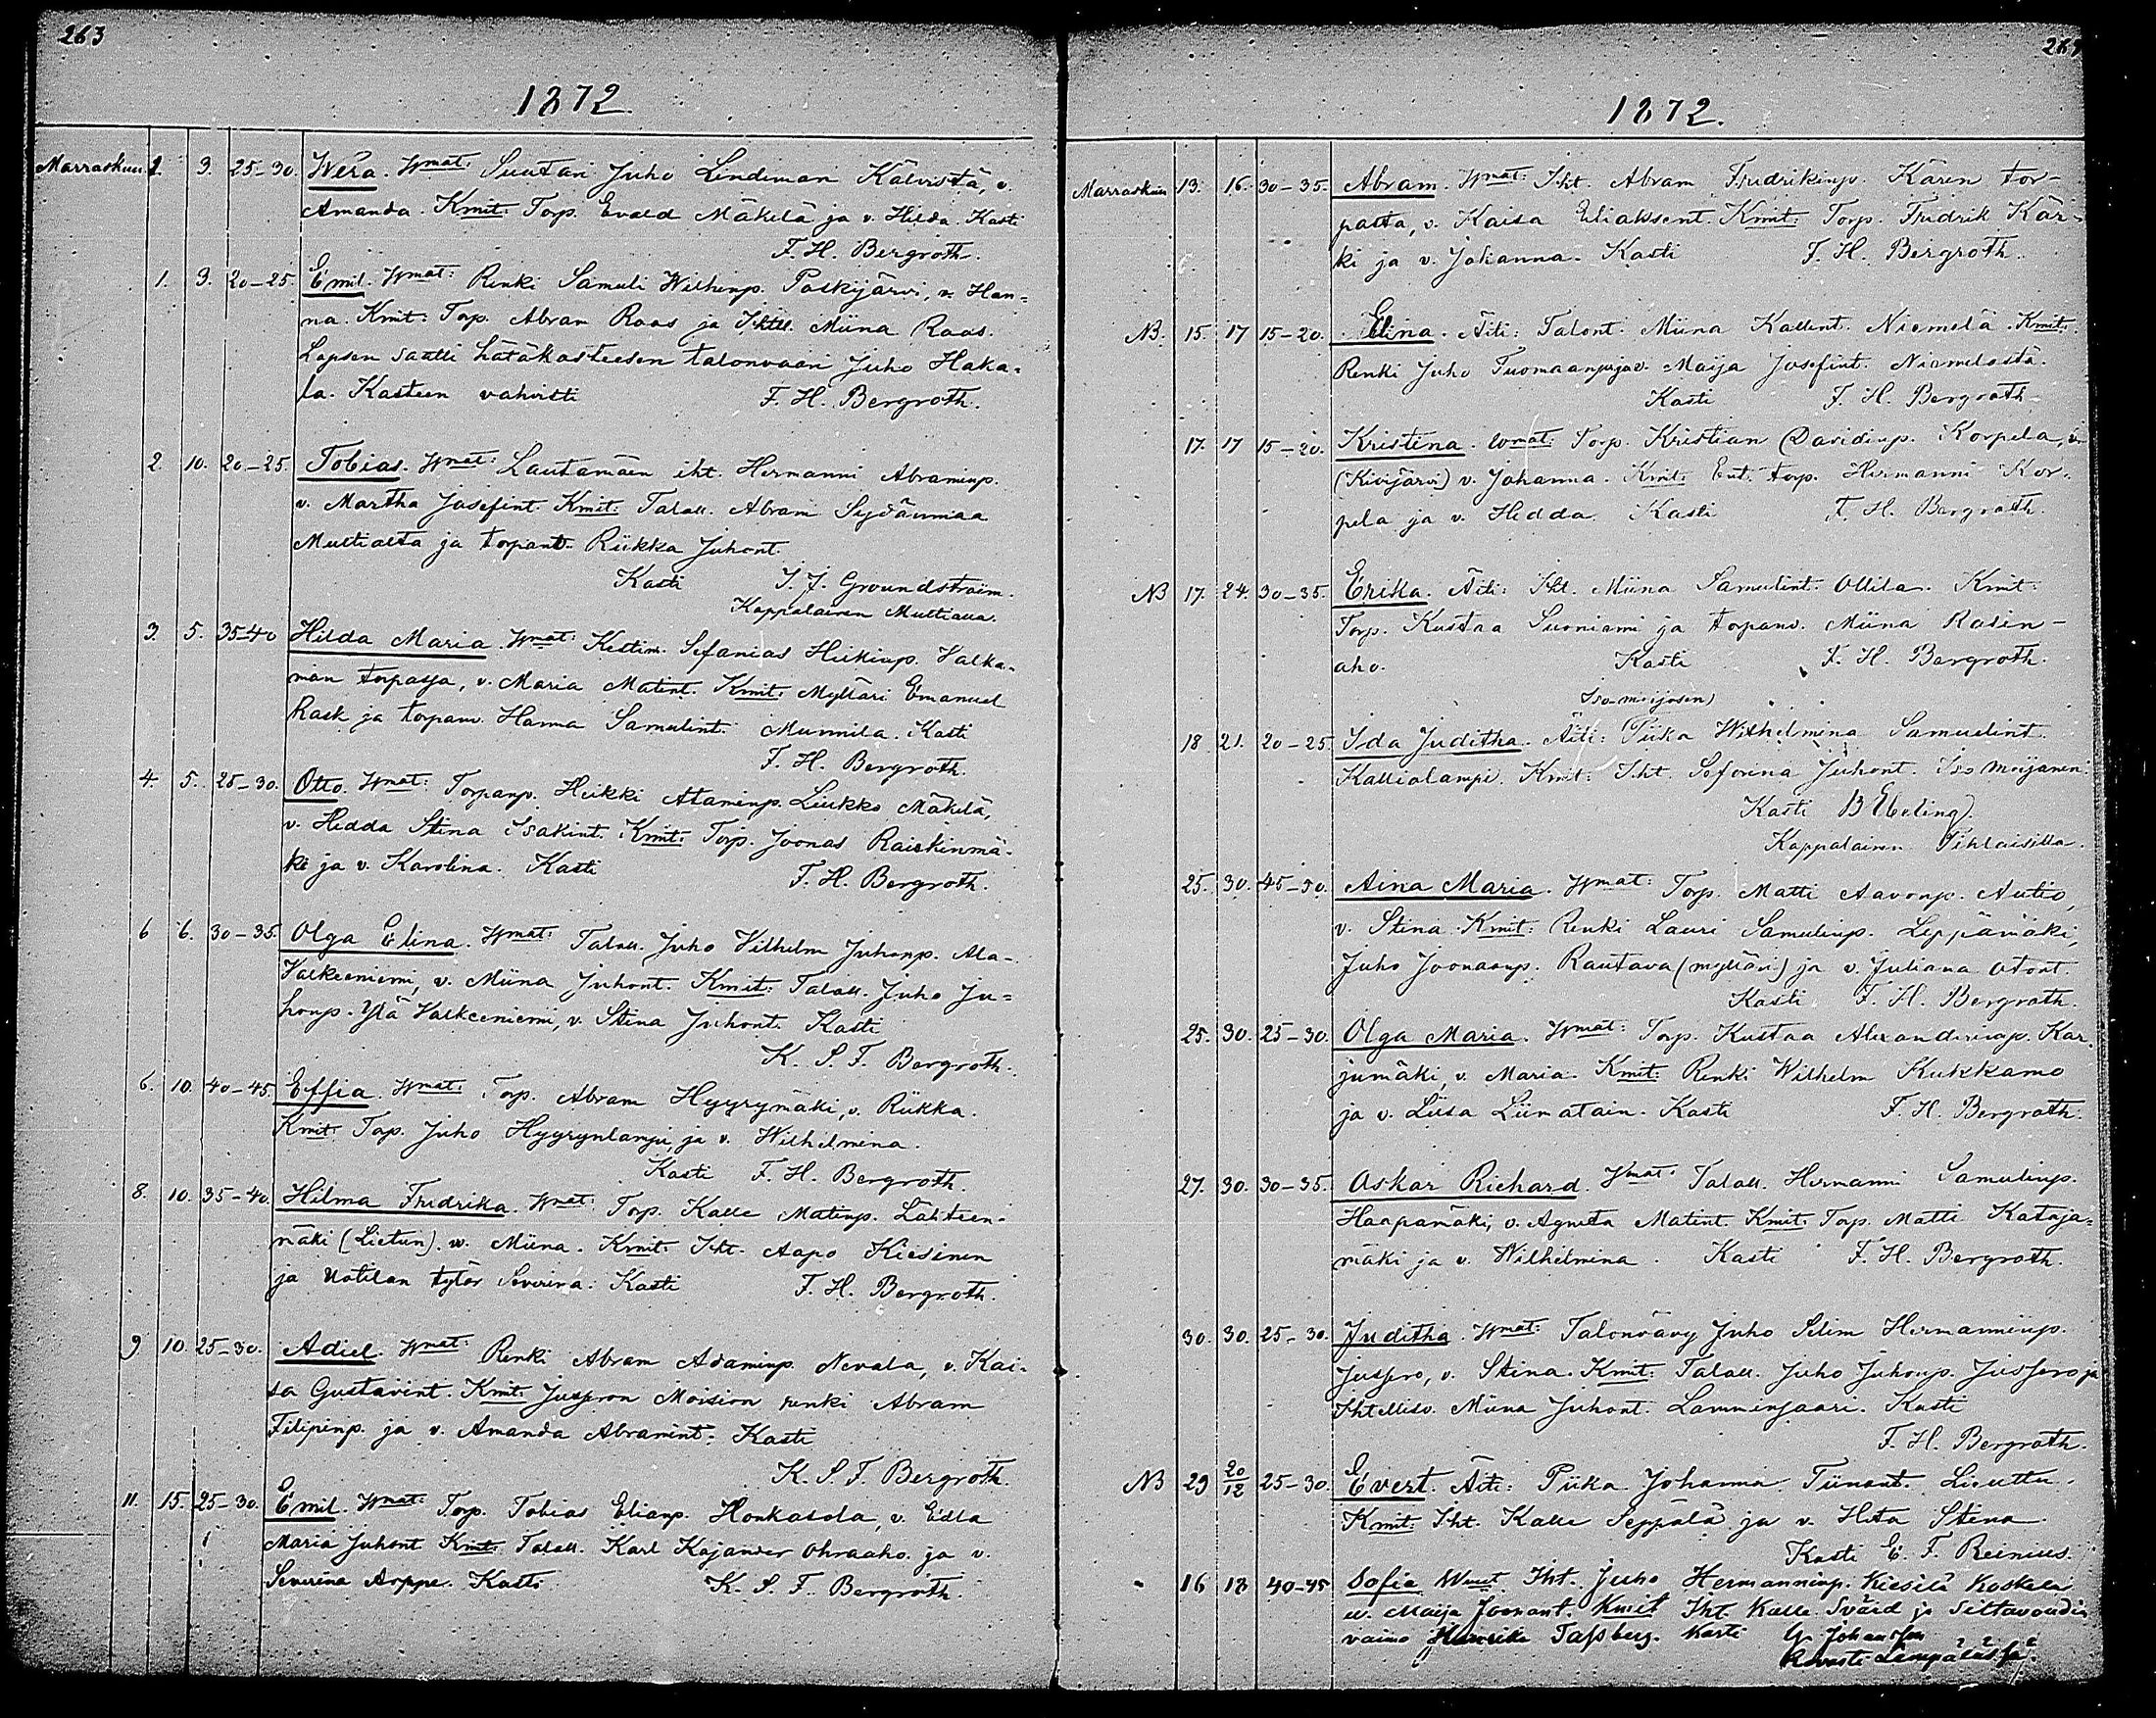 263
1872
Marraskuu 1. 3. 25-30. Wera. Wmat: Suutari Juho Lindeman Kälvistä, v.
Amanda. Kmit: Torp. Evald Mäkelä ja v. Hilda. Kasti
F. H. Bergroth.
1. 3. 20-25. Emil. Wmat: Renki Samuli Wilhinp. Paskijärvi, v. Han=
na. Kmit: Torp. Abram Raas ja Ihtll. Miina Raas.
Lapsen saatti hätäkasteesen talonvaari Juho Haka=
la. Kasteen vahvisti F. H. Bergroth.
2. 10. 20-25. Tobias. Wmat: Lautamäen iht. Hermanni Abraminp.
v. Martha Josefint. Kmit: Talall. Abram Sydänmaa
Multialta ja torpant. Riikka Juhont.
Kasti I. J. Groundstroim.
Kappalainen Multialla.
3. 5. 35-40 Hilda Maria. Wmat: Kestim. Sefanias Heikinp. Valka-
man torpassa, v. Maria Matint. Kmit: Mylläri Emanuel
Rask ja torpanv. Hanna Samulint. Munnila. Kasti
F. H. Bergroth.
4. 5. 25-30. Otto. Wmat: Torpanp. Heikki Ataminp. Liukko Mäkelä,
v. Hedda Stina Isakint. Kmit: Torp. Joonas Raiskinmä-
ki ja v. Karolina. Kasti F. H. Bergroth.
6 6. 30-35. Olga Elina. Wmat: Talall. Juho Vilhelm Juhonp. Ala-
Valkeeniemi, v. Miina Juhont. Kmit: Talall. Juho Ju=
honp. Ylä Valkeeniemi, v. Stina Juhont. Kasti
K. S. F. Bergroth.
6. 10. 40-45. Effia. Wmat: Torp. Abram Hyyrymäki, v. Riikka.
Kmit: Torp. Juho Hyyrynlampi, ja v. Wilhelmina.
Kasti F. H. Bergroth.
8. 10. 35-40. Hilma Fredrika. Wmat: Torp. Kalle Matinp. Lähteen-
mäki (Lietun). w. Miina. Kmit: Iht. Aapo Kiesinen
ja Uotilan tytär Severina: Kasti F. H. Bergroth.
9 10. 25-30. Adiel. Wmat: Renki Abram Adaminp. Nevala, v. Kai-
sa Gustavint. Kmit: Jusperon Moision renki Abram
Filipinp. ja v. Amanda Abramint: Kasti
K. S. F. Bergroth.
11. 15. 25-30. Emil. Wmat: Torp. Tobias Elianp. Honkasola, v. Edla
Maria Juhont Kmit: Talall. Karl Kajander Ohraaho ja v.
Severina Aoppe. Kasti K. S. F. Bergroth.
1872.
Marraskuu 13. 16. 30-35. Abram. Wmat: Iht. Abram Fredrikinp. Kären tor-
pasta, v. Kaisa Eliaksent. Kmit: Torp. Fredrik Kär-
ki ja v. Johanna. Kasti F. H. Bergroth.
NB. 15. 17 15-20. Elina. Äiti: Talont. Miina Kallent. Niemelä. Kmit:
Renki Juho Tuomaanp. ja v. Maija Josefint. Niemelästä.
Kasti F. H. Bergroth
17. 17 15-20. Kristina. Wmat: Torp. Kristian Davidinp. Korpela,
(Kivijärvi) v. Johanna. Kmit: Ent. torp. Hermanni Kor-
pela ja v. Hedda. Kasti F. H. Bergroth.
NB 17. 24. 30-35. Erika. Äiti: Iht. Miina Samulint. Ollila. Kmit:
Torp. Kustaa Suoniemi ja torpanv. Miina Rasin-
aho. Kasti F. H. Bergroth.
Iso-moijasen)
18. 21. 20-25. Ida Juditha. Äiti: Piika Wilhelmina Samuelint
Kalliolampi. Kmit: Iht. Seforina Juhont. Iso Moijanen.
Kasti B Ebeling
Kappalainen Pihlaisilla.
25. 30. 45-50. Aina Maria. Wmat: Torp. Matti Aavonp. Autio,
v. Stina. Kmit: Renki Lauri Samulinp. Leppämäki,
Juho Joonaanp. Rautava (mylläri) ja v. Juliana Otont.
Kasti F. H. Bergroth.
25. 30. 25-30. Olga Maria. Wmat: Torp. Kustaa Alexanderinp. Kar-
jumäki, v. Maria. Kmit: Renki Wilhelm Kukkamo
ja v. Liisa Liimatain. Kasti F. H. Bergroth.
27. 30. 30-35. Oskar Richard. Wmat: Talall. Hermanni Samulinp.
Haapamäki, v. Agneta Matint. Kmit: Torp. Matti Kataja=
mäki ja v. Wilhelmina. Kasti F. H. Bergroth.
30. 30. 25-30. Juditha. Wmat: Talonvävy Juho Selim Hermanninp.
Juspero, v. Stina. Kmit: Talall. Juho Juhonp. Juspero ja
Ihtellisv. Miina Juhont. Lamminsaari. Kasti
F. H. Bergroth.
NB 29 20/12 25-30. Evert. Äiti: Piika Johanna Tiinant. Lieuttu.
Kmit: Iht. Kalle Seppälä ja v. Heta Stina
Kasti E. F. Reinius.
16 18 40-45 Sofia Wmat. Iht. Juho Hermanninp. Kiesilä Koskela
w. Maija Joonant. Kmit Iht. Kalle Svärd ja Siltavoudin
vaimo Henrika Tassberg. Kasti G. Johansson
Rovasti Lempäälässä.